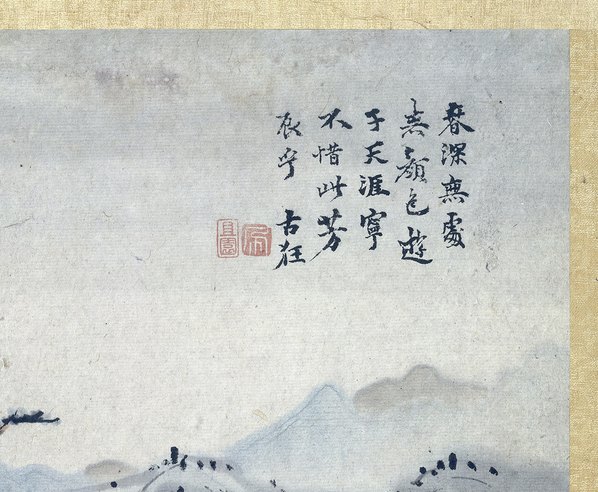 春深無處
無顏色遊
子天涯寧
不惜此芳
辰乎 古狂
且園